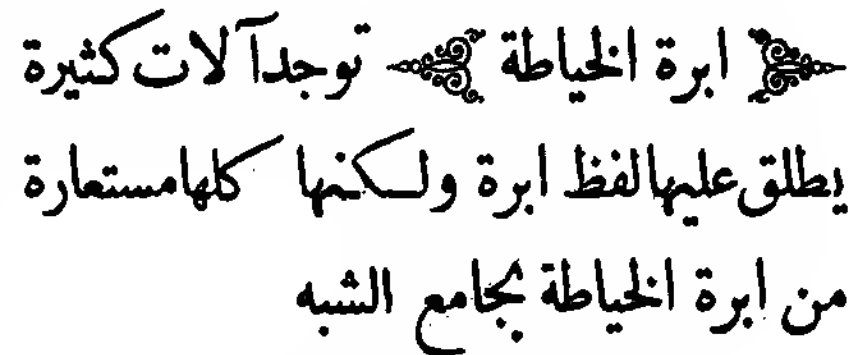 ﴿ ابرة الخياطة ﴾ توجد آلات كثيرة
يطلق عليها لفظ ابرة ولكنها كلها مستعارة
من ابرة الخياطة بجامع الشبه